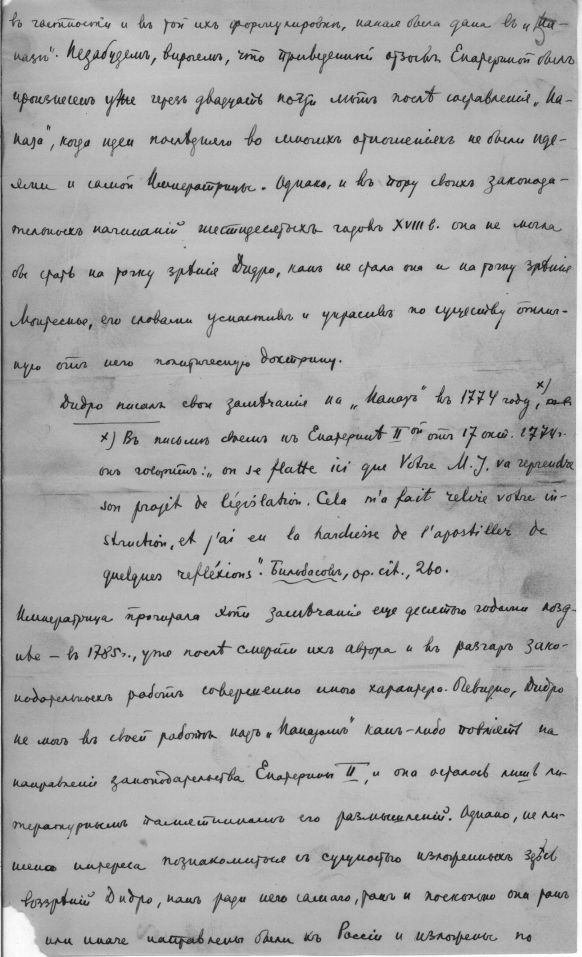 въ частности и въ той ихъ формулировкѣ, какая была дана въ „На-
казѣ“. Незабудемъ, впрочемъ, что приведенный отзывъ Екатериной былъ
произнесенъ уже черезъ двадцать почти лѣтъ послѣ составленія „На-
каза“, когда идеи послѣдняго во многихъ отношеніяхъ не были иде-
ями и самой Императрицы. Однако, и въ пору своихъ законода-
тельныхъ начинаній шестидесятыхъ годовъ XVIII в. она не могла
бы стать на точку зрѣнія Дидро, какъ не стала она и на точку зрѣнія
Монтескье, его словами уснастивъ и украсивъ по существу отлич-
ную отъ него политическую доктрину.
Дидро писалъ свои замѣчанія на „Наказъ“ въ 1774 году, x)
x) Въ письмѣ своемъ къ Екатеринѣ II ой отъ 17 окт. 1774 г.
онъ говоритъ: „on se flatte ici que Votre M. J. va reprendre
son projet de législation. Cela m'a fait relire votre in-
struction, et j'ai eu la hardiesse de l'apostiller de
quelques refléxions“. Бильбасовъ, op. cit., 260.
Императрица прочитала эти замѣчанія еще десятью годами позд-
нѣе – въ 1785 г., уже послѣ смерти ихъ автора и въ разгаръ зако-
нодательныхъ работъ совершенно иного характера. Очевидно, Дидро
не могъ въ своей работѣ надъ „Наказомъ“ какъ-либо повліять на
направленіе законодательства Екатерины II, и она осталось лишь ли-
тературнымъ памятникомъ его размышленій. Однако, не ли-
шено интереса познакомиться съ сущностью изложенныхъ здѣсь
воззрѣній Дидро, какъ ради него самаго, такъ и поскольку они такъ
или иначе направлены были къ Россіи и изложены по